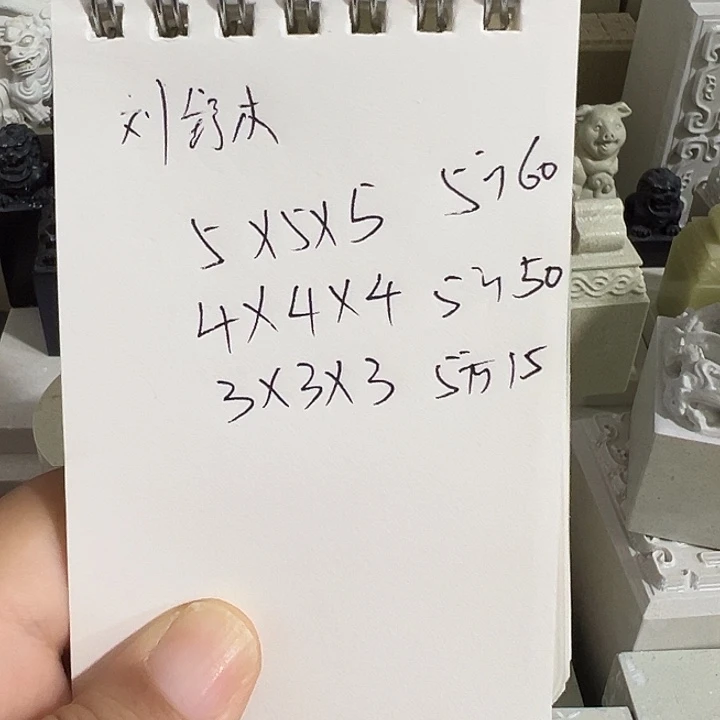 刘舒木
5X5X5 5方60
4X4X4 5方50
3X3X3 5方15